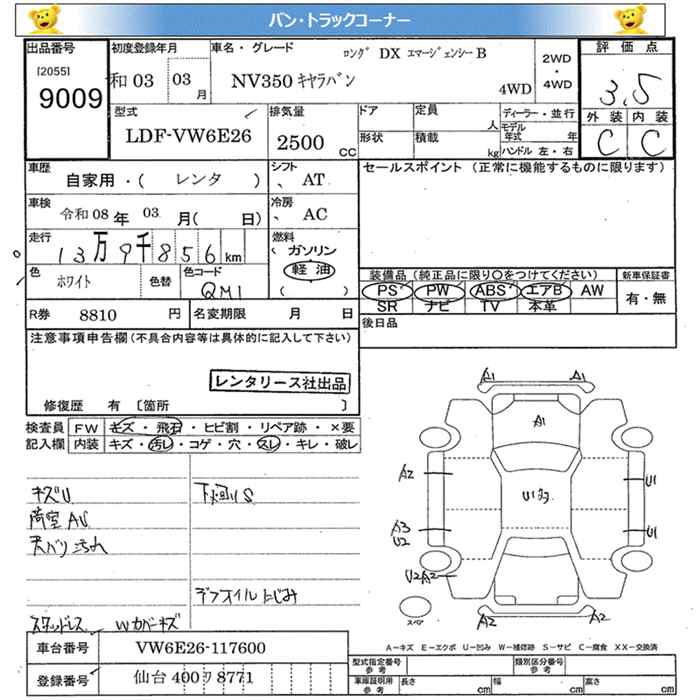 バン・トラックコーナー
出品番号
[2055]
9009
初度登録年月
和03 03 月
車名・グレード
ロング DX エマージェンシーB
NV350 キャラバン
4WD
2WD
・
4WD
評価点
3.5
外装 内装
C C
型式
LDF-VW6E26
排気量
2500 CC
ドア
定員
人
形状
積載
kg
ディーラー・並行
モデル年式 年
ハンドル 左・右
車歴
自家用・( レンタ )
シフト
、 AT
セールスポイント (正常に機能するものに限ります)
車検
令和08 年 03 月( 日)
冷房
、 AC
走行
13万9千856 km
燃料
ガソリン
軽油
( )
色
ホワイト
色替
色コード
QM1
装備品 (純正品に限り〇をつけてください)
新車保証書
PS PW ABS エアB AW
SR ナビ TV 本革
有・無
R券 8810 円
名変期限 月 日
後日品
注意事項申告欄 (不具合内容等は具体的に記入して下さい)
レンタリース社出品
修復歴 有 〔箇所 〕
検査員
記入欄
FW キズ・飛石・ヒビ割・リペア跡・×要
内装 キズ・汚レ・コゲ・穴・スレ・キレ・破レ
キズU
荷室AU
天バリ汚れ
下廻りS
デフオイルにじみ
スタッドレス Wカバーキズ
A1 A1
A1
A2
U1
U13
A3
U2
U1
U2 A2
A2 A2
スペア
A－キズ E－エクボ U－凹み W－補修跡 S－サビ C－腐食 XX－交換済
車台番号
VW6E26-117600
登録番号
仙台 400 ワ 8771
型式指定番号
参考
類別区分番号
参考
車庫証明用
参考
長さ cm
幅 cm
高さ cm